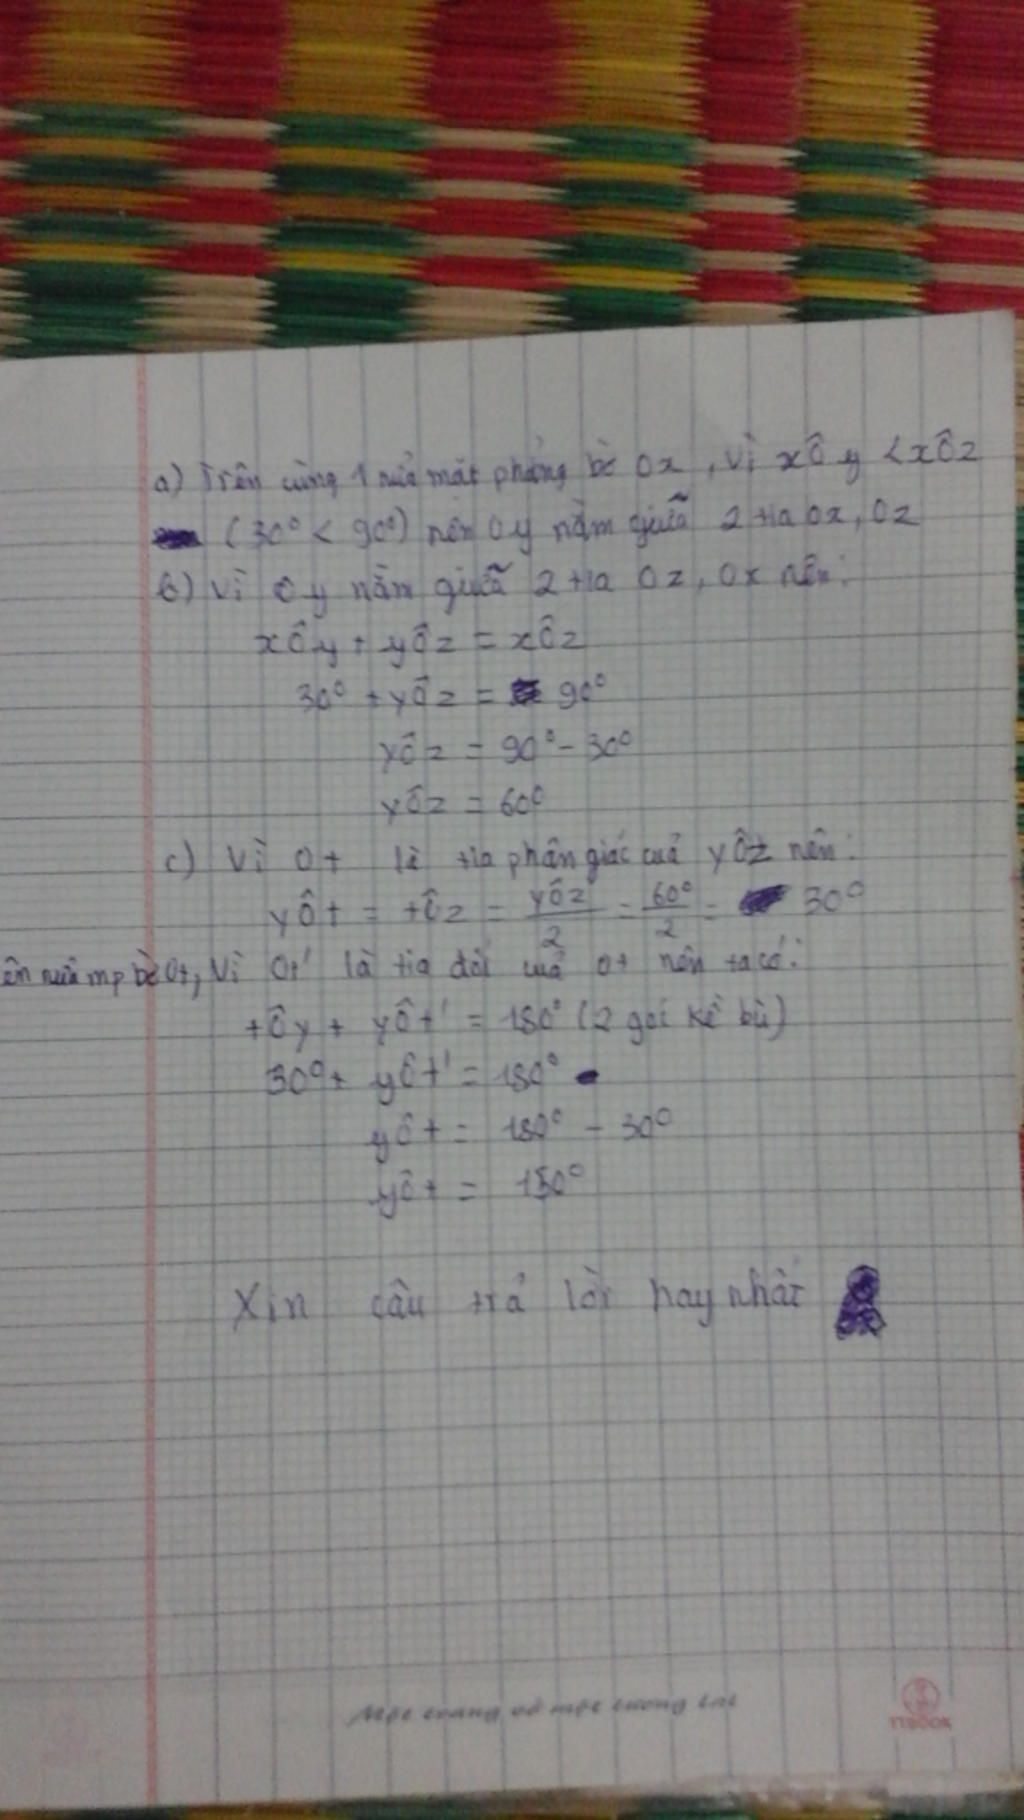 a) Trên cùng 1 nửa mặt phẳng bờ Ox, vì xÔy < xÔz
(30° < 90°) nên Oy nằm giữa 2 tia Ox, Oz
b) Vì Oy nằm giữa 2 tia Oz, Ox nên:
xÔy + yÔz = xÔz
30° + yÔz = 90°
yÔz = 90° - 30°
yÔz = 60°
c) Vì Ot là tia phân giác của yÔz nên:
yÔt = tÔz = yÔz/2 = 60°/2 = 30°
ên nửa mp bờ Ot, Vì Ot' là tia đối của Ot nên ta có:
tÔy + yÔt' = 180° (2 góc kề bù)
30° + yÔt' = 180°
yÔt = 180° - 30°
yÔt = 150°
Xin câu trả lời hay nhất
TTBOOK